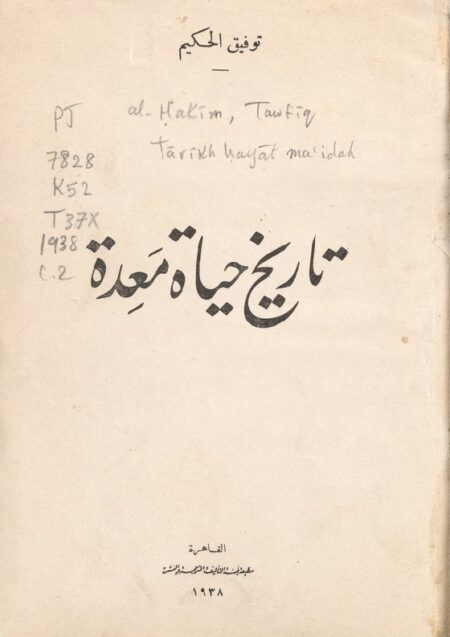 توفيق الحكيم
al-Ḥakīm, Tawfīq
Tārīkh ḥayāt ma‘idah
PJ
7828
K52
T37X
1938
c.2
تاريخ حياة مَعِدة
القاهرة
مطبعة لجنة التأليف والترجمة والنشر
١٩٣٨